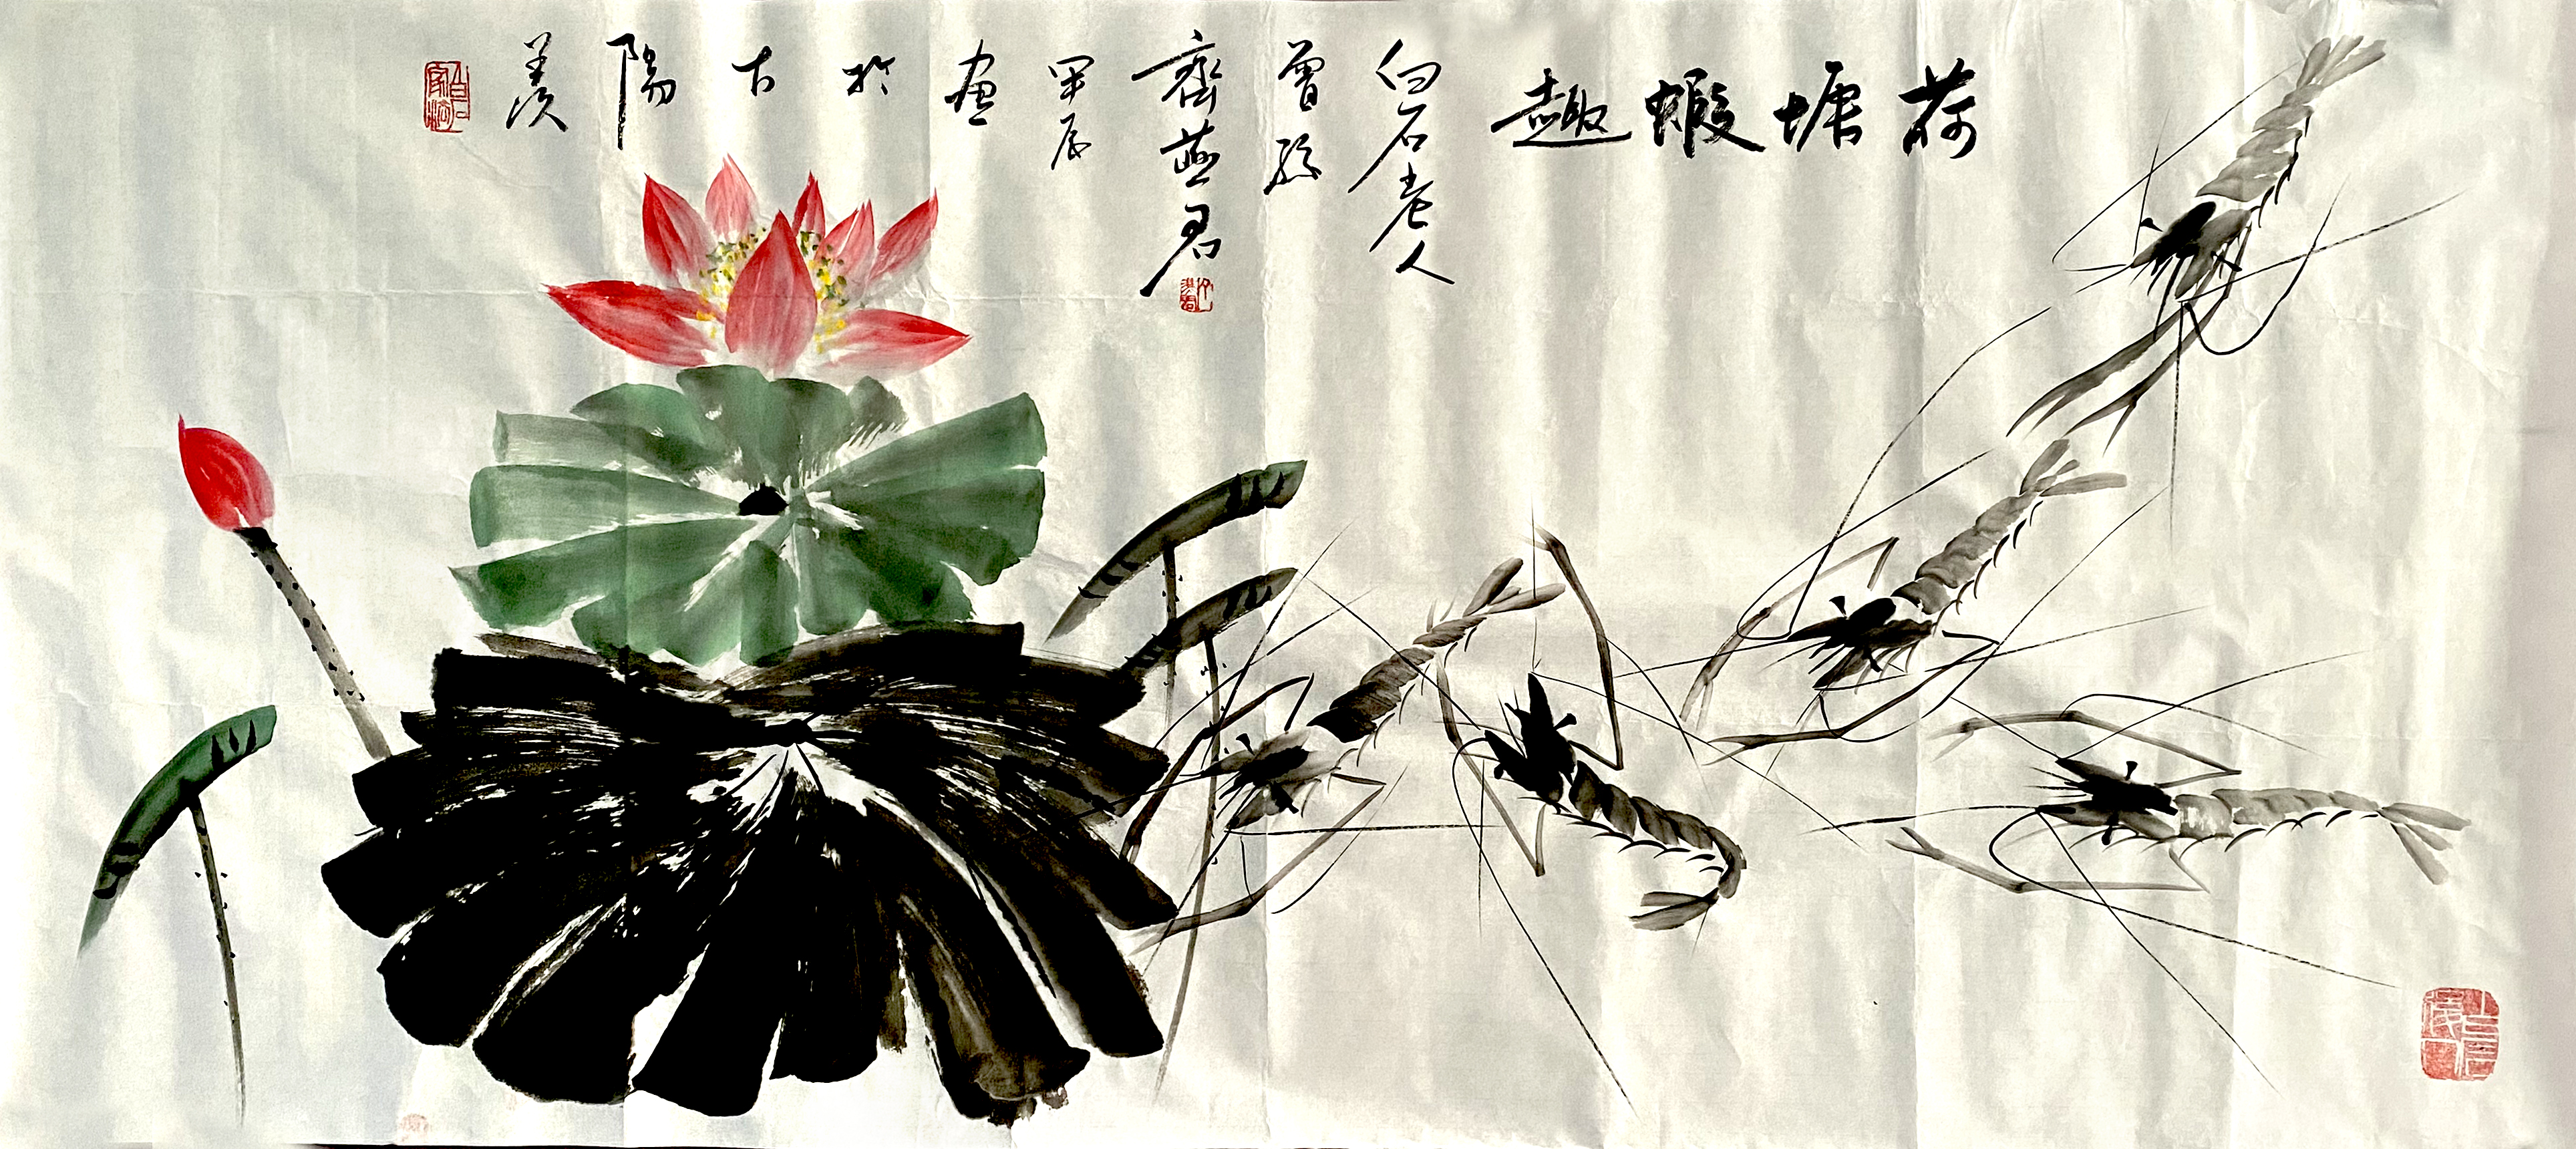 荷塘蝦趣
白石老人
曾孫
齊燕君
甲辰
畫於古陽羨